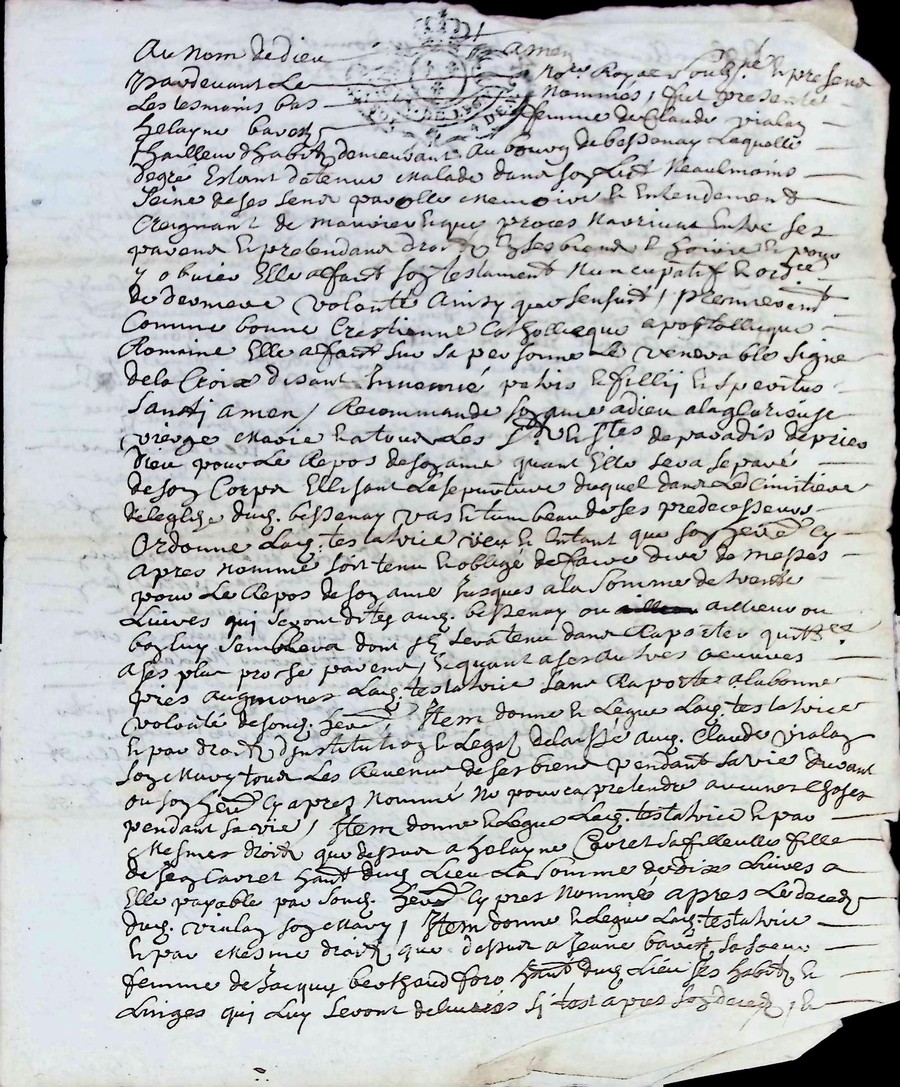 Au nom de dieu amen
pardevant Le no.re Royal soubs.né et presens
Les tesmoins bas nommes, fut presente
helayne bavet femme de Claude vialay
thailleur d'habitz demeurant au bourg de bessenay Laquelle
degre Estant detenue malade dans son Lict Neaulmoins
seine de ses sens parolle memoire et Entendement
Creignant de mourir et que proces N'arrivat entre ses
parens et pretendans droit en ses biens et hoirie et pour
y obvier Elle a faict son testament Nuncupatif et ordre
de derniere volonté Ainsy que sensuit, premierement
Comme bonne Crestienne Catholicque apostollique
Romaine Elle a faict sur sa personne Le venerable signe
de la Croix disant Innomié patris et fillij et speritus
Santi amen, Recommande son ame a dieu a la glorieuse
vierge marie et a tous Les Sts et stes de paradis de prier
dieu pour Le Repos de son ame quant Elle sera separé
de son Corps Ellisant La sepulture duquel dans Le Cimitiere
de leglize dud. bessenay vas et tumbeau de ses predecesseurs
Ordonne Lad. testatrice veu et Entant que son here Cy
apres nommé soit tenu et obligé de faire dire de messes
pour Le Repos de son ame Jusques a la somme de trente
Livres qui seront dites aud. bessenay ou aillieurs ou
bon luy semblera dont il sera tenu dans Raporter quittce
a ses plus proches parens, Et quant a ses autres oeuvres
pies aulmones Lad. testatrice sans Raporte a la bonne
volonté de sond. here Item donne et Legue Lad. testatrice
et par droit d'institution et Legat delaisse aud. Claude vialay
son mary tous Les Revenus de ses biens pendant sa vie durant
ou son here Cy apres Nommé ne pourra pretendre aucunes Choses
pendant sa vie, Item donne et Legue Lad. testatrice et par
mesmes droit que dessus a helayne Cavret sa filleulle fille
de Jean Cavret hant dud. Lieu La somme de dix Livres a
Elle payable par sond. here Cy pres Nommés apres Le deced
dud. vialay son mary, Item donne et Legue Lad. testatrice
et par mesme droit que dessus a Jeane bavet sa soeur
femme de Jacques berthaud hant dud. Lieu ses habitz et
Linges qui Luy seront delivrés si tost apres son deced, et